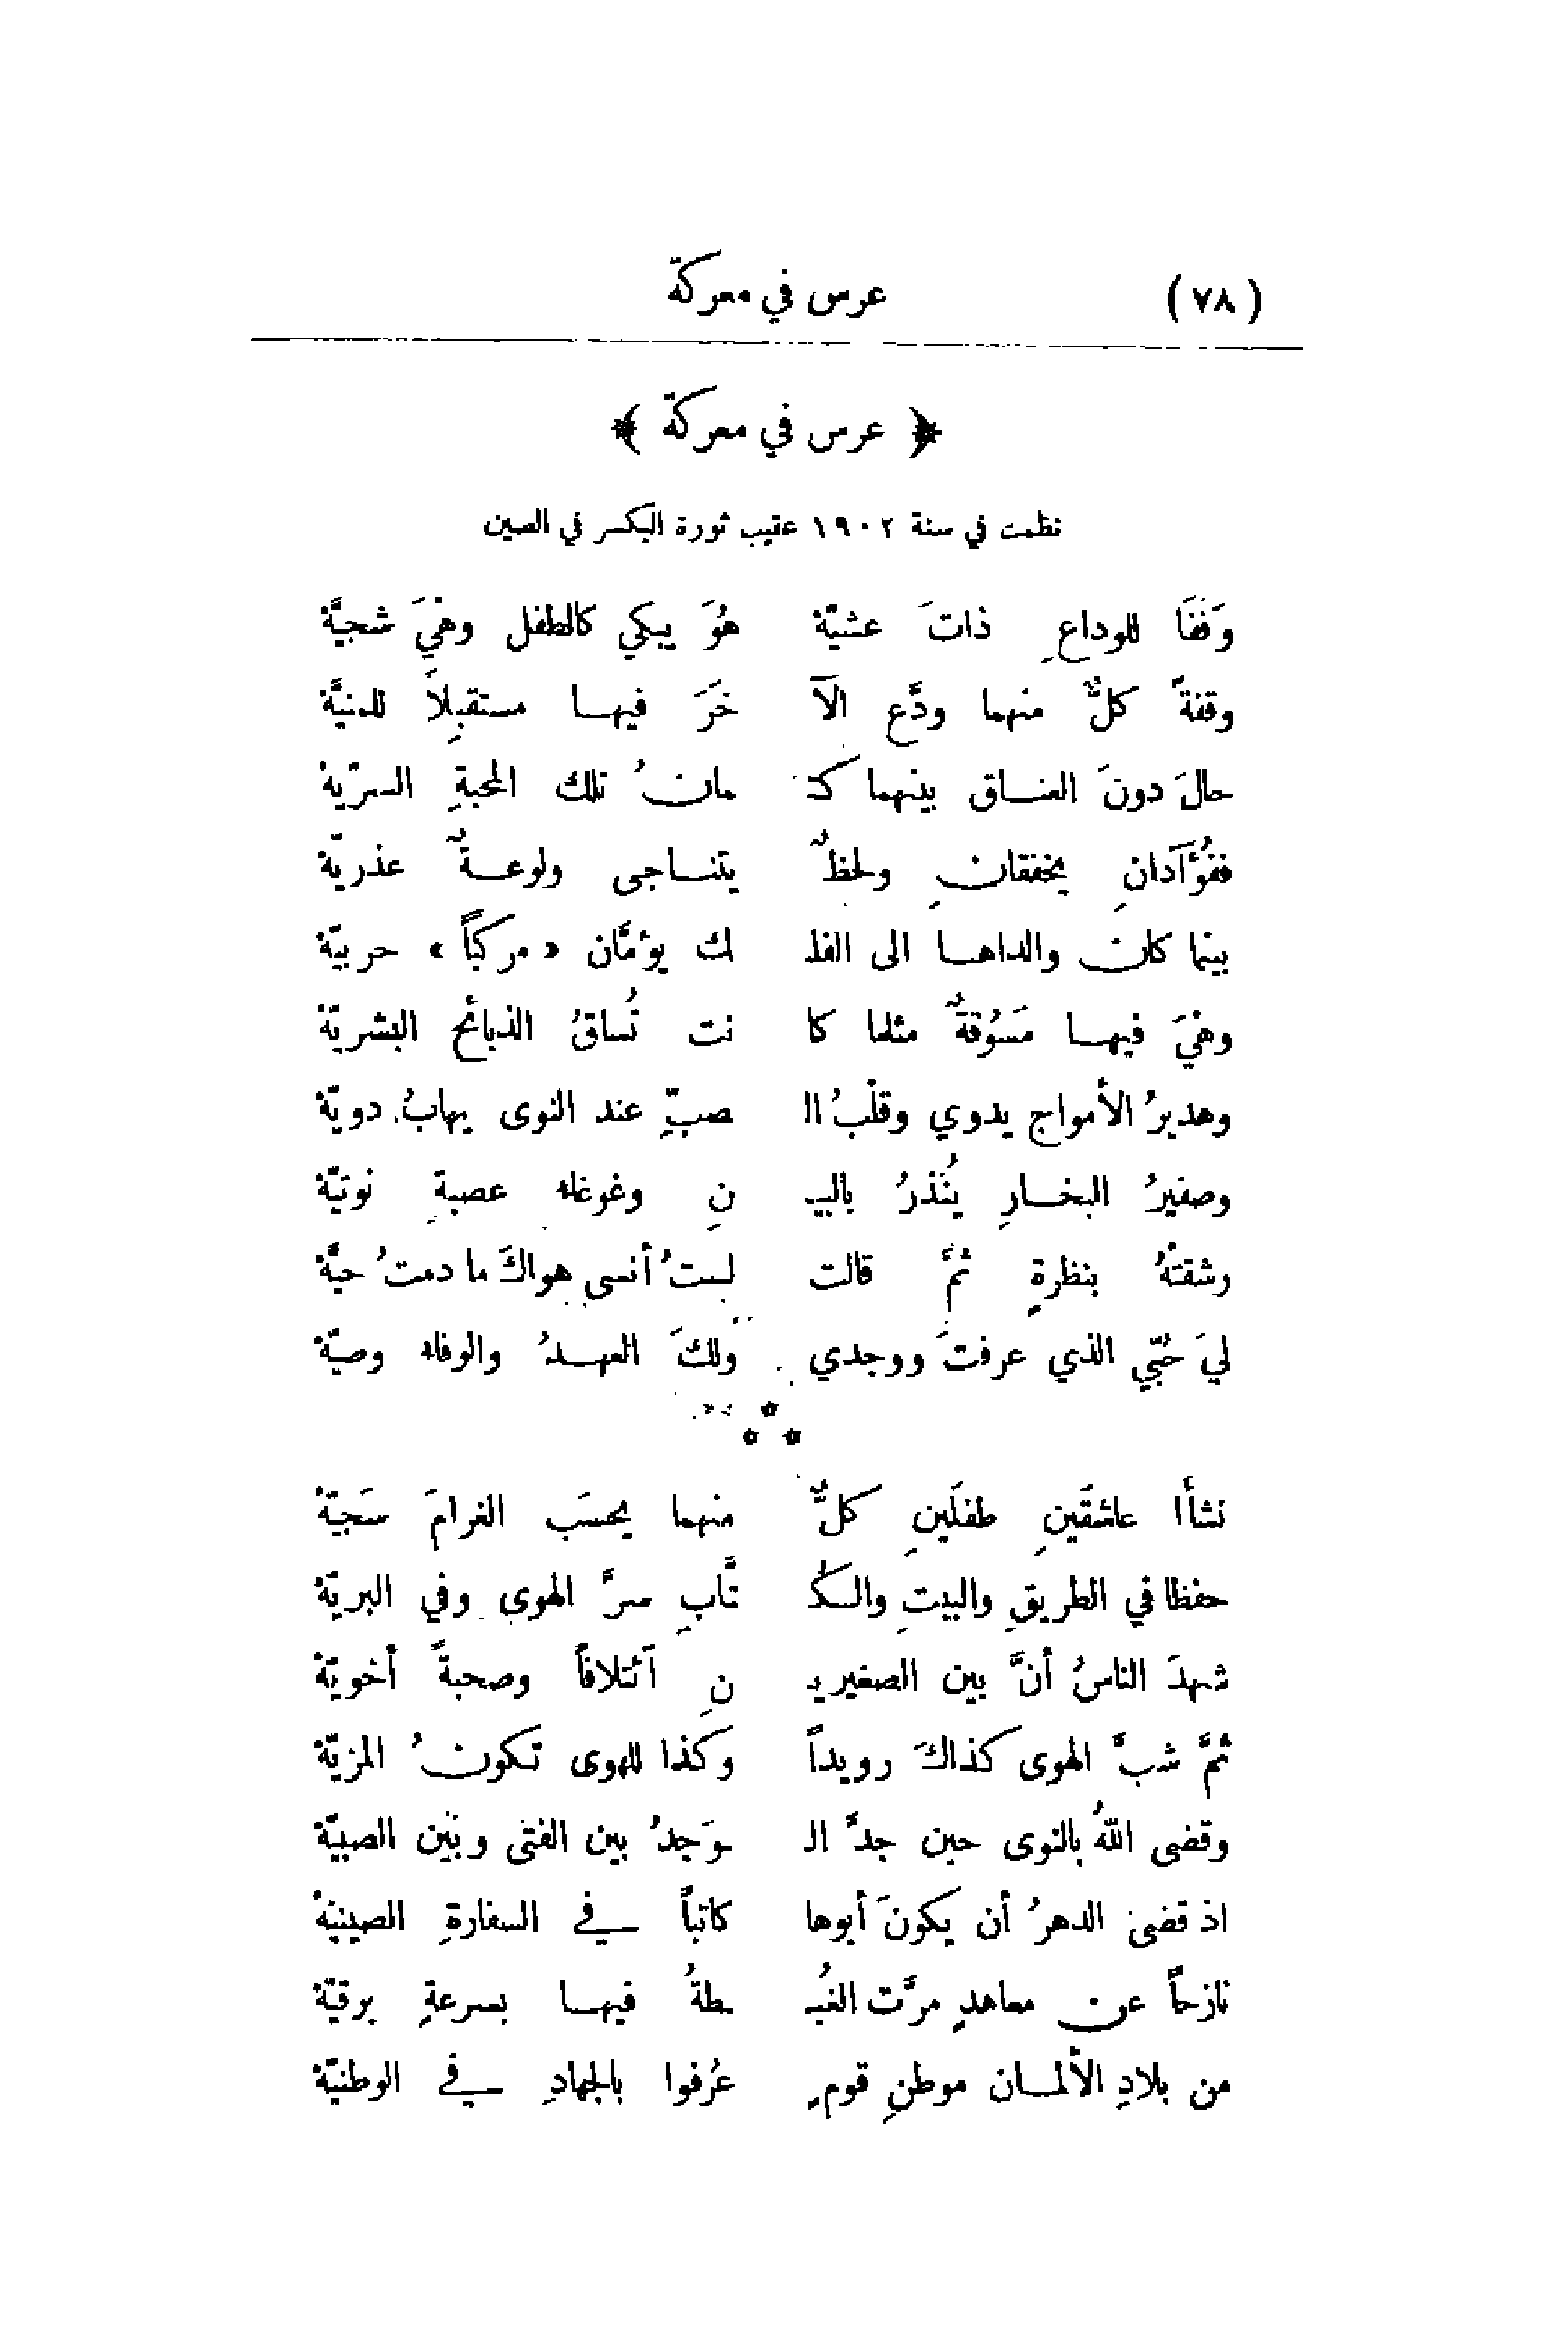 (٧٨) عرس في معركة
﴿ عرس في معركة ﴾
نظمت في سنة ١٩٠٢ عقيب ثورة البكسر في الصين
وَقفَا للوداعِ ذاتَ عشيّة هوَ يبكي كالطفل وهْيَ شجيَّة
وقفةً كلٌّ منهما ودَّع الآ خَرَ فيهـا مستقبِلاً للمنيَّة
حالَ دونَ العنـاق بينهما كتـ ـمانُ تلك المحبةِ السرّية
ففُؤَآدانِ يخفقانِ ولحظٌ يتنـاجى ولوعـةٌ عذريّة
بينما كان والداهـا الى الفلـ لك يؤمَّان « مركباً » حربيّة
وهْيَ فيهـا مَسُوقةٌ مثلما كا نت تُساقُ الذبائح البشريّة
وهديرُ الأمواج يدوي وقلْبُ الـ صبِّ عند النوى يهابُ دويّة
وصفيرُ البخـارِ يُنذرُ بالبيـ نِ وغوغاءِ عصبةٍ نوتيّة
رشقتْهُ بنظرةٍ ثمَّ قالت لستُ أنسى هواكَ ما دمتُ حيَّة
ليَ حُبّي الذي عرفتَ ووجدي ولكَ العهـدُ والوفاء وصيّة
***
نشأا عاشقَينِ طفلَينِ كلٌّ منهما يحسَب الغرامَ سَجيّة
حفظا في الطريقِ والبيتِ والكُـ تَّابِ سرَّ الهوى وفي البريّة
شهدَ الناسُ أنَّ بين الصغيريـ نِ آئتلافاً وصحبةً أخويّة
ثمَّ شبَّ الهوى كذاكَ رويداً وكذا للهوى تكونُ المزيّة
وقضى اللهُ بالنوى حين جدَّ الـ ـوَجدُ بين الفتى وبَين الصبيّة
اذ قضى الدهرُ أن يكونَ أبوها كاتباً في السفارةِ الصينيّة
نازحاً عن معاهدٍ مرَّت الغُبـ ـطةُ فيهـا بسرعةٍ برقيّة
من بلادِ الألمـان موطنِ قومٍ عُرفوا بالجهادِ في الوطنيّة